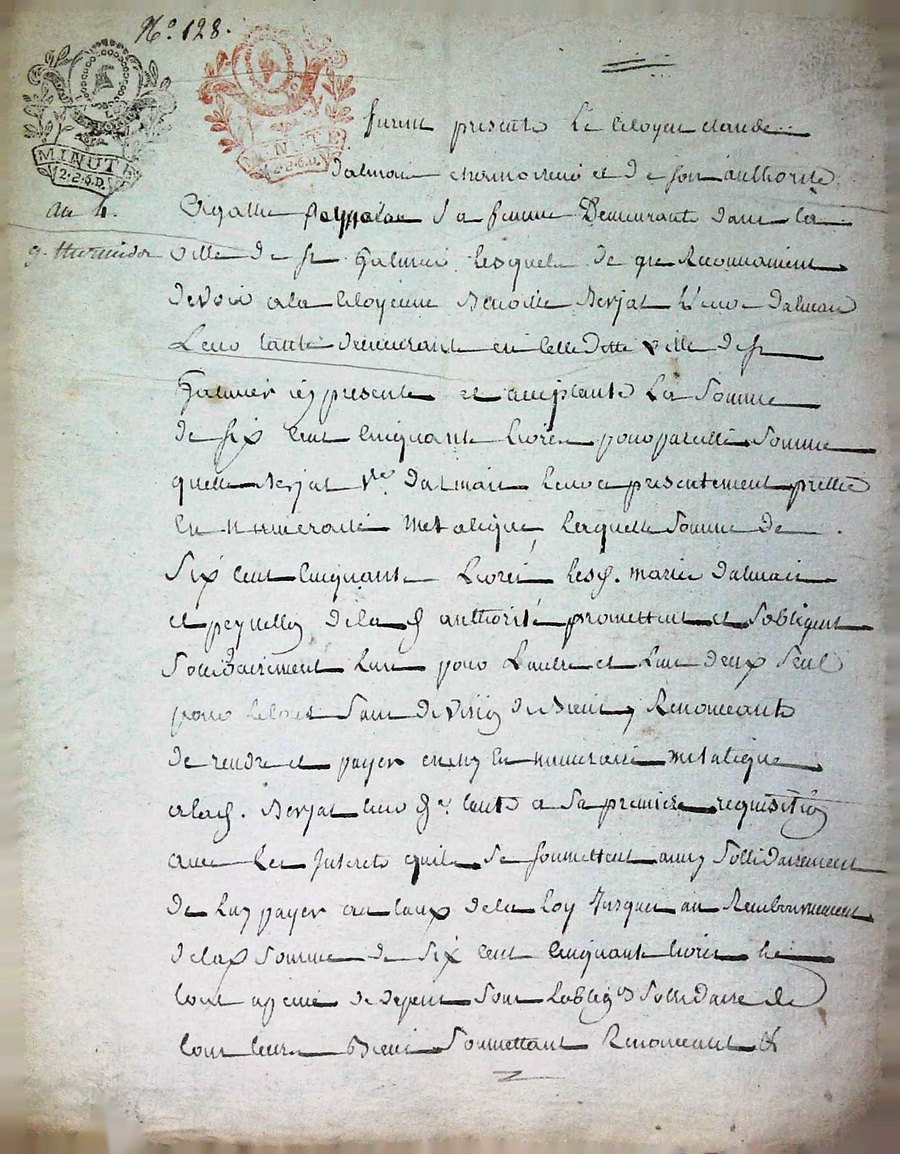 N.° 128.
MINUTE
2.2.6.D.
MINUTE
2.2.6.D.
an 4.
9. thermidor
furent presents le Citoyen claude
dalmais et de son authorité
Agathe sa femme Demeurants dans la
ville de st galmier lesquels de gré Reconnoissent
devoir ala Citoyenne Benoitte Berjat veuve dalmais
leur tante demeurante en cette dette ville de st
Galmier icy presente et acceptante La Somme
de six cent cinquante livres pour pareille Somme
quelle Berjat Ve. dalmais leur a presentement prettée
En numeraire metalique, laquelle Somme de
Six cent cinquante Livres lesd. mariés dalmais
et de lad authorité promettent et Sobligent
Sollidairement l'un pour Lautre et l'un deux Seul
pour le tout Sans division de Biens y Renonceants
de rendre et payer en numeraire metalique
alad. Berjat leur tante a Sa premiere requisition
avec Les Interets quils Se soumettent aussy Sollidairement
de Luy payer au taux de la Loy Jusques au Remboursement
delad Somme de Six cent cinquante livres le
tout a peine de depens Sous Lobligon Sollidaire de
tous leurs Biens Soumettant Renonceant &